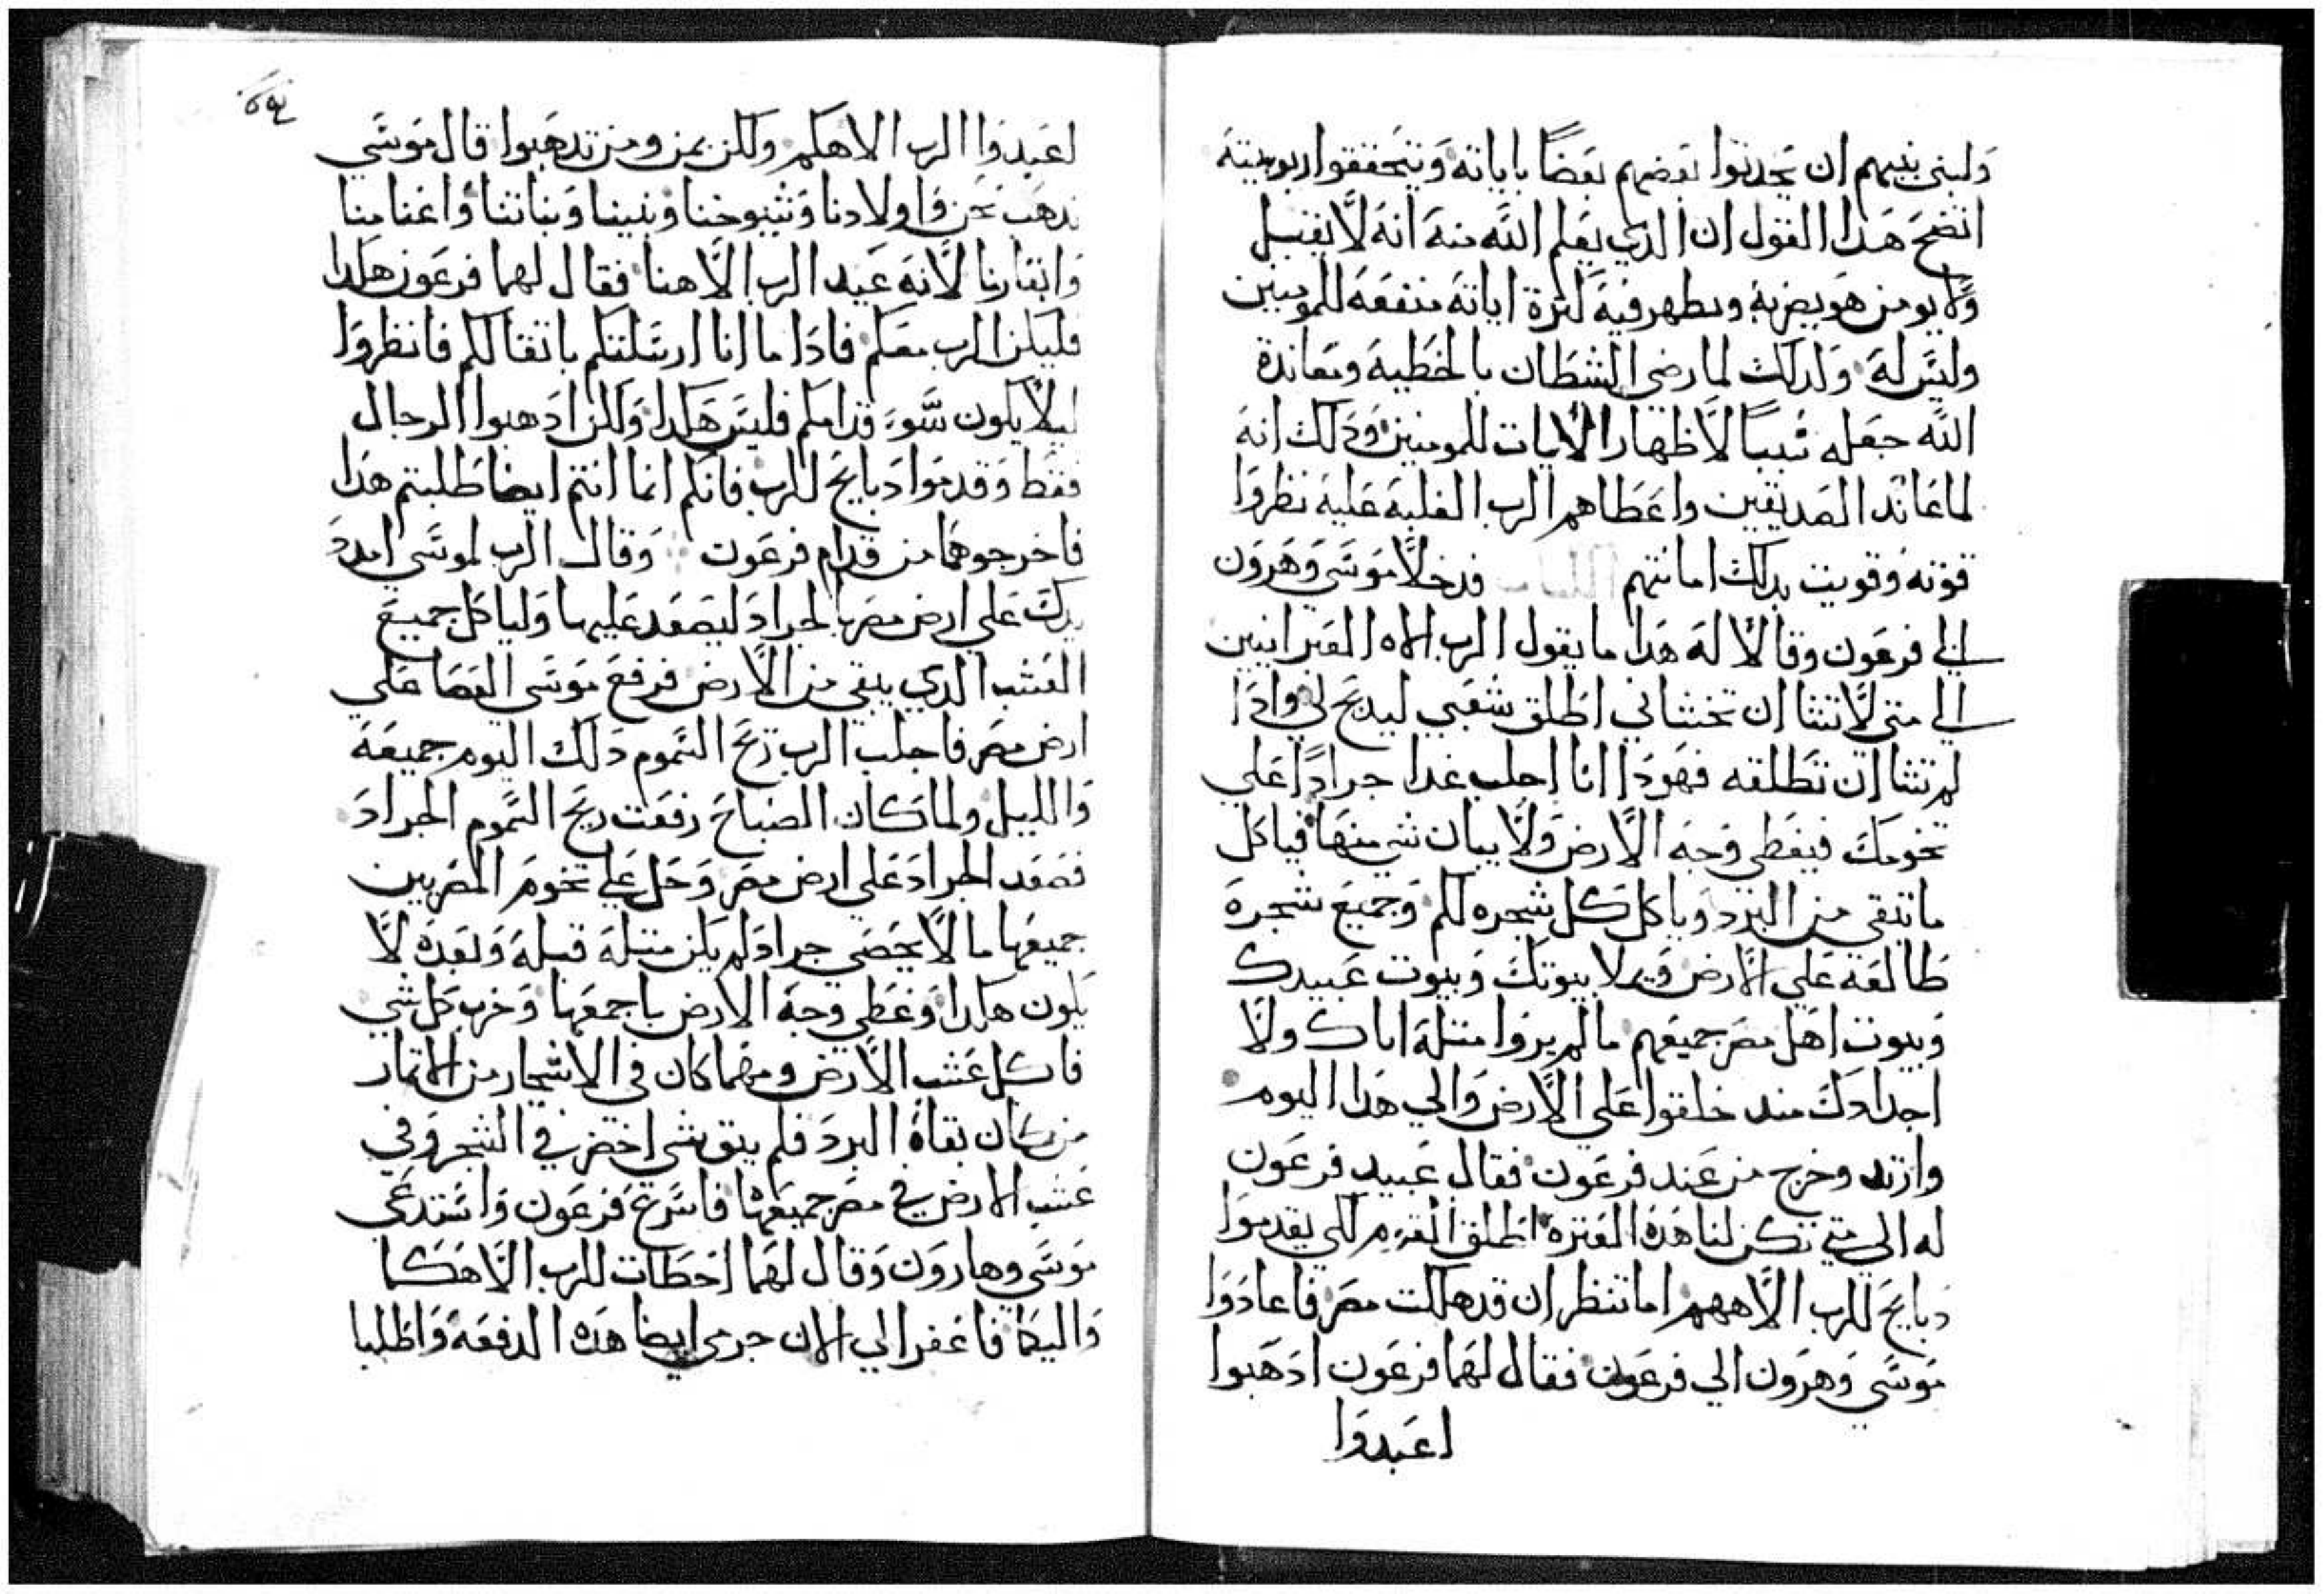 ولبني بنيهم ان يحدثوا بعضهم بعضاً باياته ويتحققوا ربوبيته
اتضح هدا القول ان الدي يعلم الله منه انه لا يقبل
ولا يومن هو يضربه ويظهر فيه كثرة اياته منفعه للمومنين
وليس له ولدلك لما رضي الشطان بالخطيه ومعاندة
الله جعله سبباً لاظهار الايات للمومنين ودلك انه
لما عاند الصديقين واعطاهم الرب الغلبه عليه نظروا
قوته وقويت بدلك امانتهم فدخلا موسي وهرون
الي فرعون وقالا له هدا ما يقول الرب الاه العبرانيين
الي متي لا تشا ان تخشاني اطلق شعبي ليدبح لي وادا
لم تشا ان تطلقه فهودا انا اجلب غدا جراداً علي
تخومك فيغطي وجه الارض ولا يبان شي منها فياكل
ما تبقي من البرد وياكل كل شجره لكم وجميع شجرة
طالعه علي الارض ويملا بيوتك وبيوت عبيدك
وبيوت اهل مصر جميعهم ما لم يروا مثله اباك ولا
اجدادك مند خلقوا علي الارض والي هدا اليوم
وارتد وخرج من عند فرعون فقال عبيد فرعون
له الي متي تكن لنا هده العترة اطلق القوم لكي يقدموا
دبايح للرب الاههم اما تنظر ان قد هلكت مصر فاعادوا
موسي وهرون الي فرعون فقال لهما فرعون ادهبوا
اعبدوا
اعبدوا الرب الاهكم ولكن بمن ومن تدهبوا قال موسي
ندهب نحن واولادنا وشيوخنا وبنينا وبناتنا واغنامنا
وابقارنا لانه عيد الرب الاهنا فقال لهما فرعون هكدا
فليكن الرب معكم فادا ما انا ارسلتكم باتقالكم فانظروا
ليلا يكون سوء قدامكم فليس هكدا ولكن ادهبوا الرجال
فقط وقدموا دبايح للرب فانكم انما انتم ايضا طلبتم هدا
فاخرجوهما من قدام فرعون وقال الرب لموسي امدد
يدك علي ارض مصر بالجراد ليصعد عليها ولياكل جميع
العشب الدي يبقي من الارض فرفع موسي العصا علي
ارض مصر فاجلب الرب ريح السموم دلك اليوم جميعه
والليل ولما كان الصباح رفعت ريح السموم الجراد
فصعد الجراد علي ارض مصر وحل علي تخوم المصريين
جميعها ما لا يحصي جراد لم يكن مثله قبله وبعده لا
يكون هكدا وغطي وجه الارض باجمعها وخرب كل شي
فاكل عشب الارض ومهما كان في الاشجار من الاتمار
من مكان بقاة البرد فلم يبق شي اخضر في الشجر وفي
عشب الارض في مصر جميعها فاسرع فرعون واستدعي
موسي وهارون وقال لهما اخطات للرب الاهكما
واليكما فاغفرا لي الان جرمي ايضا هده الدفعه واطلبا